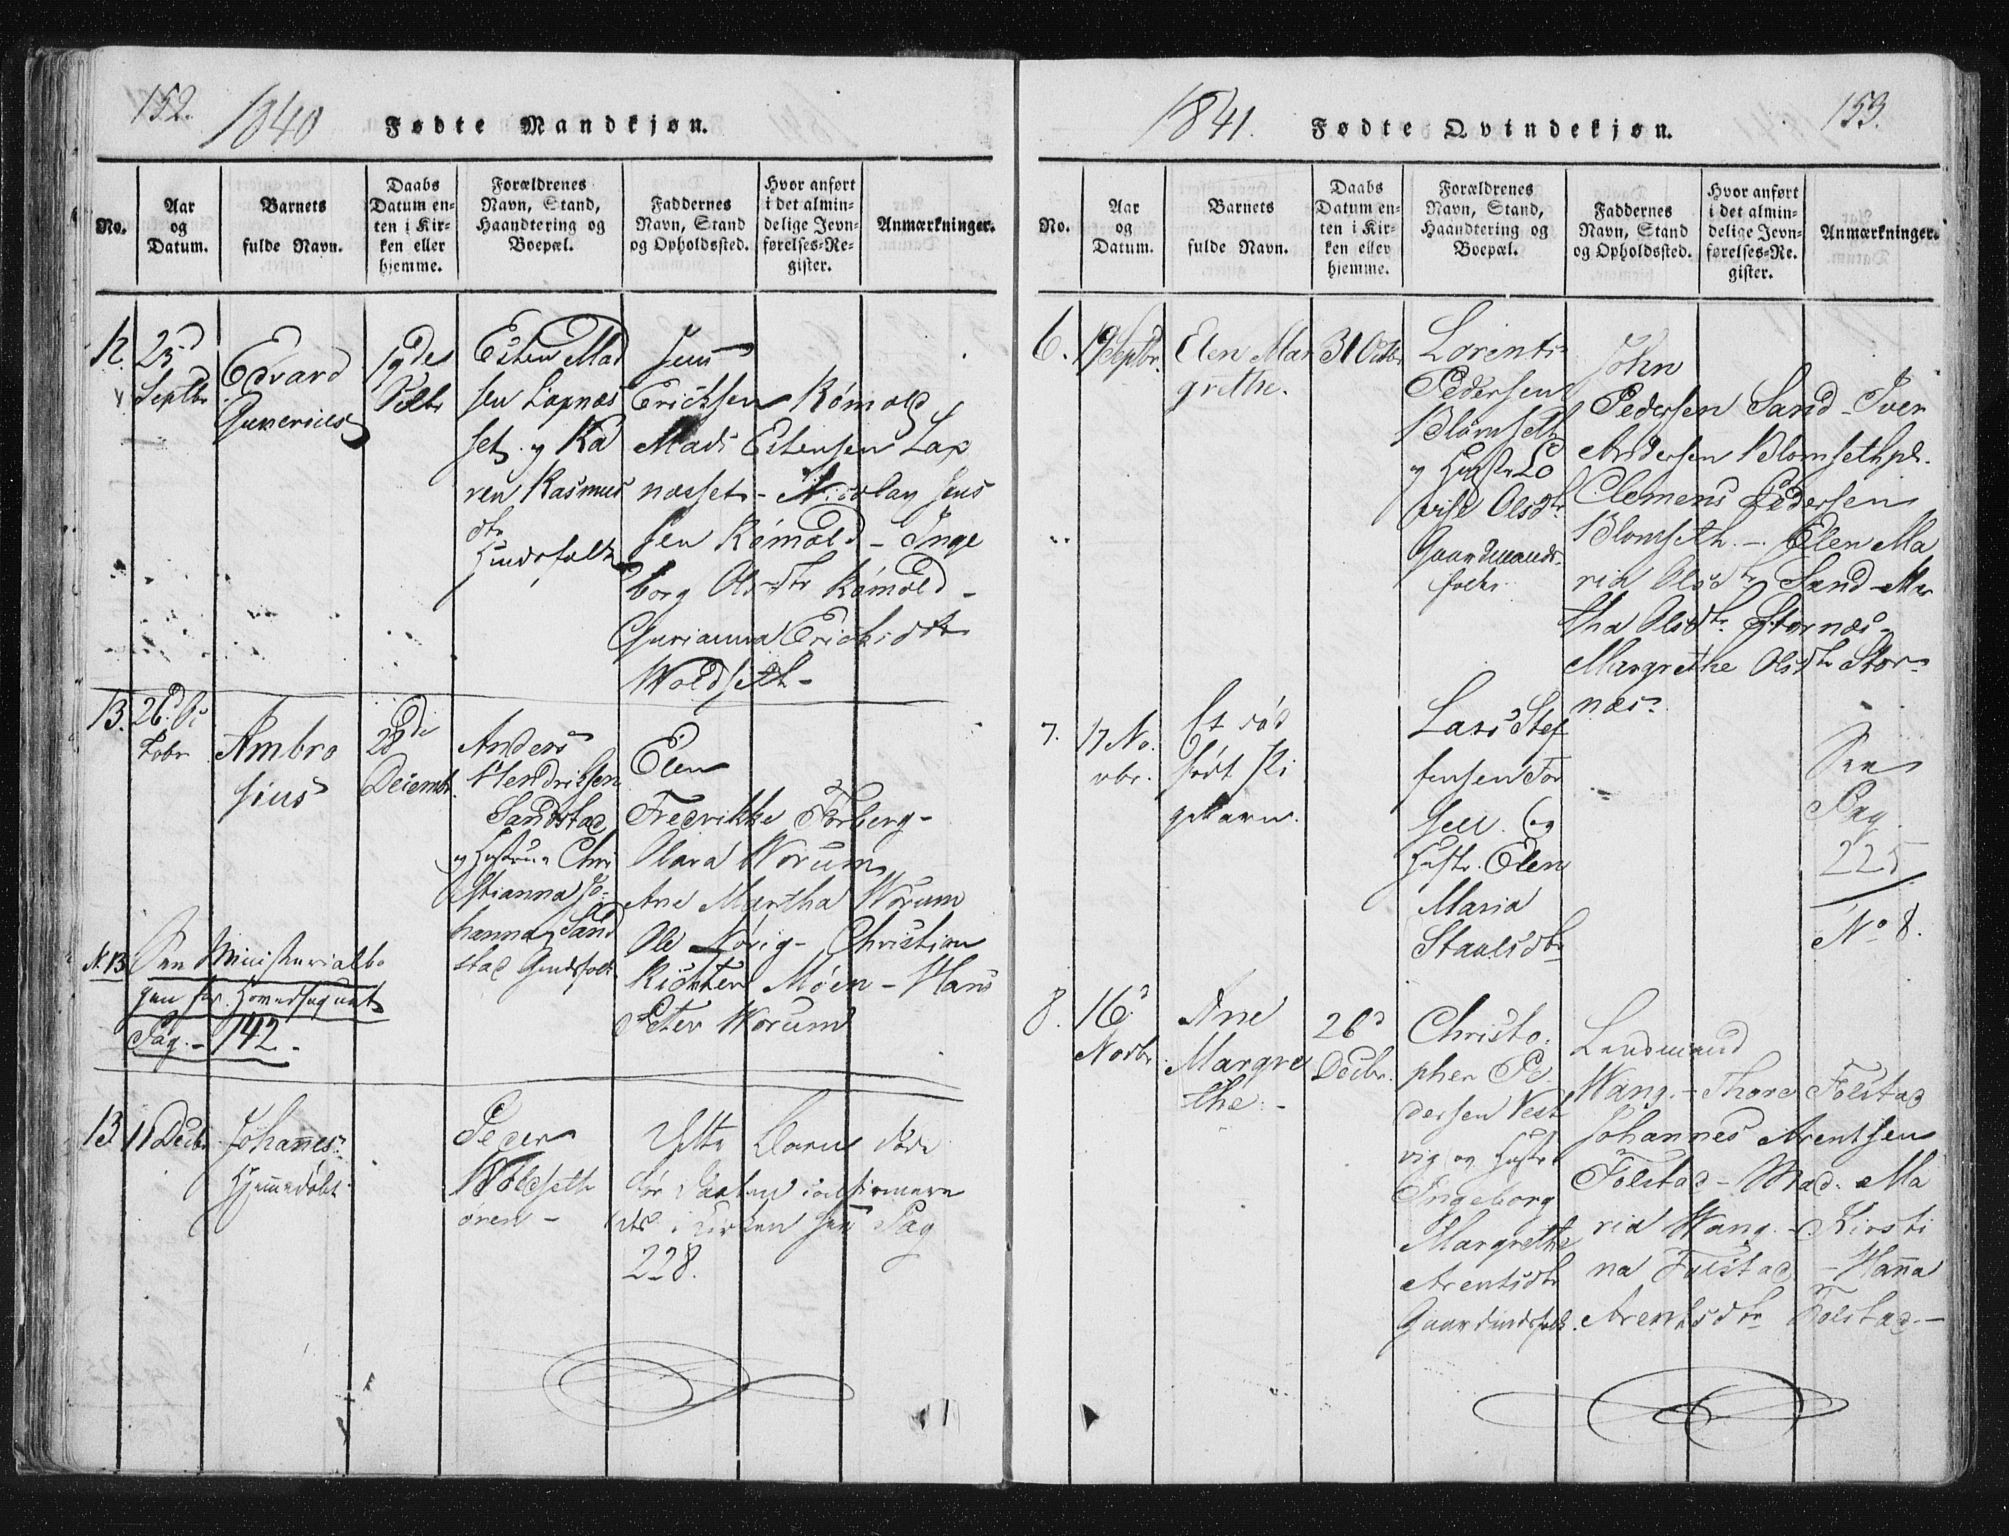 152.
1840
Fødte Mandkjøn.
No.
Aar
og
Datum.
Barnets
fulde Navn.
Daabs
Datum en-
ten i Kir-
ken eller
hjemme.
Forældrenes
Navn, Stand,
Haandtering og
Boepæl.
Faddernes
Navn, Stand
og Opholdssted.
Hvor anført
i det almin-
delige Jevn-
førelses-Re-
gister.
Anmærkninger.
12.
23d
Septbr
Edvard
Gunerius
19de
Esten Mad
sen Lapnæs
set og Ka
ren Rasmus
dtr
Jens
Ericksen Römold
Mads Estensen Lap
næsset - Nicolay Jens
sen Römold - Inge
borg Olsdtr Römold -
Gurianna Erichsdtr
Woldseth -
13.
26d Oc
tobr
Ambro
sius
28de
Decembr.
Anders
Hendriksen
Sandstad
og Hustrue Chri
stianna Jo-
hanna Sand
stad
Elen
Fredrikke Forberg -
Olava Worum
Ane Martha Worum
Ole Nörig - Christian
Richter Möen - Hans
Peter Worum
N. 13
See Ministerialbo
gen for Hovedsognet
Pag. - 142 -
13
11 Decbr
Johannes
Hjemmedöbt
Peder
Woldseth
ören -
Dette Barn döde
för
i Kirken see Pag
228.
1841.
Fødte Qvindekjøn.
153.
No.
Aar
og
Datum.
Barnets
fulde Navn.
Daabs
Datum en-
ten i Kir-
ken eller
hjemme.
Forældrenes
Navn, Stand,
Haandtering og
Boepæl.
Faddernes
Navn, Stand
og Opholdssted.
Hvor anført
i det almin-
delige Jevn-
førelses-Re-
gister.
Anmærkninger.
6.
19 Septbr.
Elen Mar
grethe.
31 Octbr
Lorents
Pedersen
Blomseth
og Hustr Lo
vise Olsdtr
Gaardmands-
folk
John
Pedersen Sand - Iver
Andersen Blomsethpl.
Clemens Pedersen
Blomseth. - Elen Ma
ria Olsdtr Sand - Mar
tha Olsdtr Stornæs -
Margrethe Olsdtr Stor-
næs.
7.
17 No.
vbr.
Et död
födt Pi
gebarn.
Lars Stef
fensen For
sell. og
Hustr. Elen
Maria
Staalsdtr
See
Pag.
225
No 8.
8.
16d
Novbr.
Ane
Margre
the. -
26d
Decbr.
Christo-
pher Pe
dersen Vest
vig og Hustr
Ingeborg
Margrethe
Arentsdtr
Lensmand
Wang. - Thore Folstad
Johannes Arentsen
Folstad - Mad. Ma
ria Wang. - Kirsti
na Folstad - Hanna
Arentsdtr Folstad. -